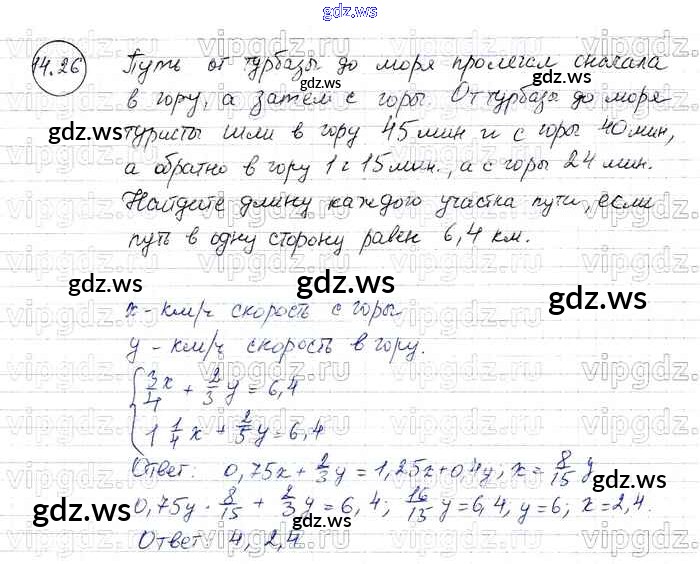 gdz.ws
14.26 Путь от турбазы до моря пролегал сначала
в гору, а затем с горы. От турбазы до моря
туристы шли в гору 45 мин и с горы 40 мин,
а обратно в гору 1 ч 15 мин., а с горы 24 мин.
Найдите длину каждого участка пути, если
путь в одну сторону равен 6,4 км.
x - км/ч скорость с горы
y - км/ч скорость в гору.
{ 3/4 x + 2/3 y = 6,4
1 1/4 x + 2/5 y = 6,4
Ответ: 0,75x + 2/3 y = 1,25x + 0,4y; x = 8/15 y
0,75y · 8/15 + 2/3 y = 6,4; 16/15 y = 6,4, y = 6; x = 2,4.
Ответ: 4, 2,4
gdz.ws
gdz.ws
gdz.ws
gdz.ws
gdz.ws
gdz.ws
gdz.ws
gdz.ws
gdz.ws
gdz.ws
vipgdz.ru